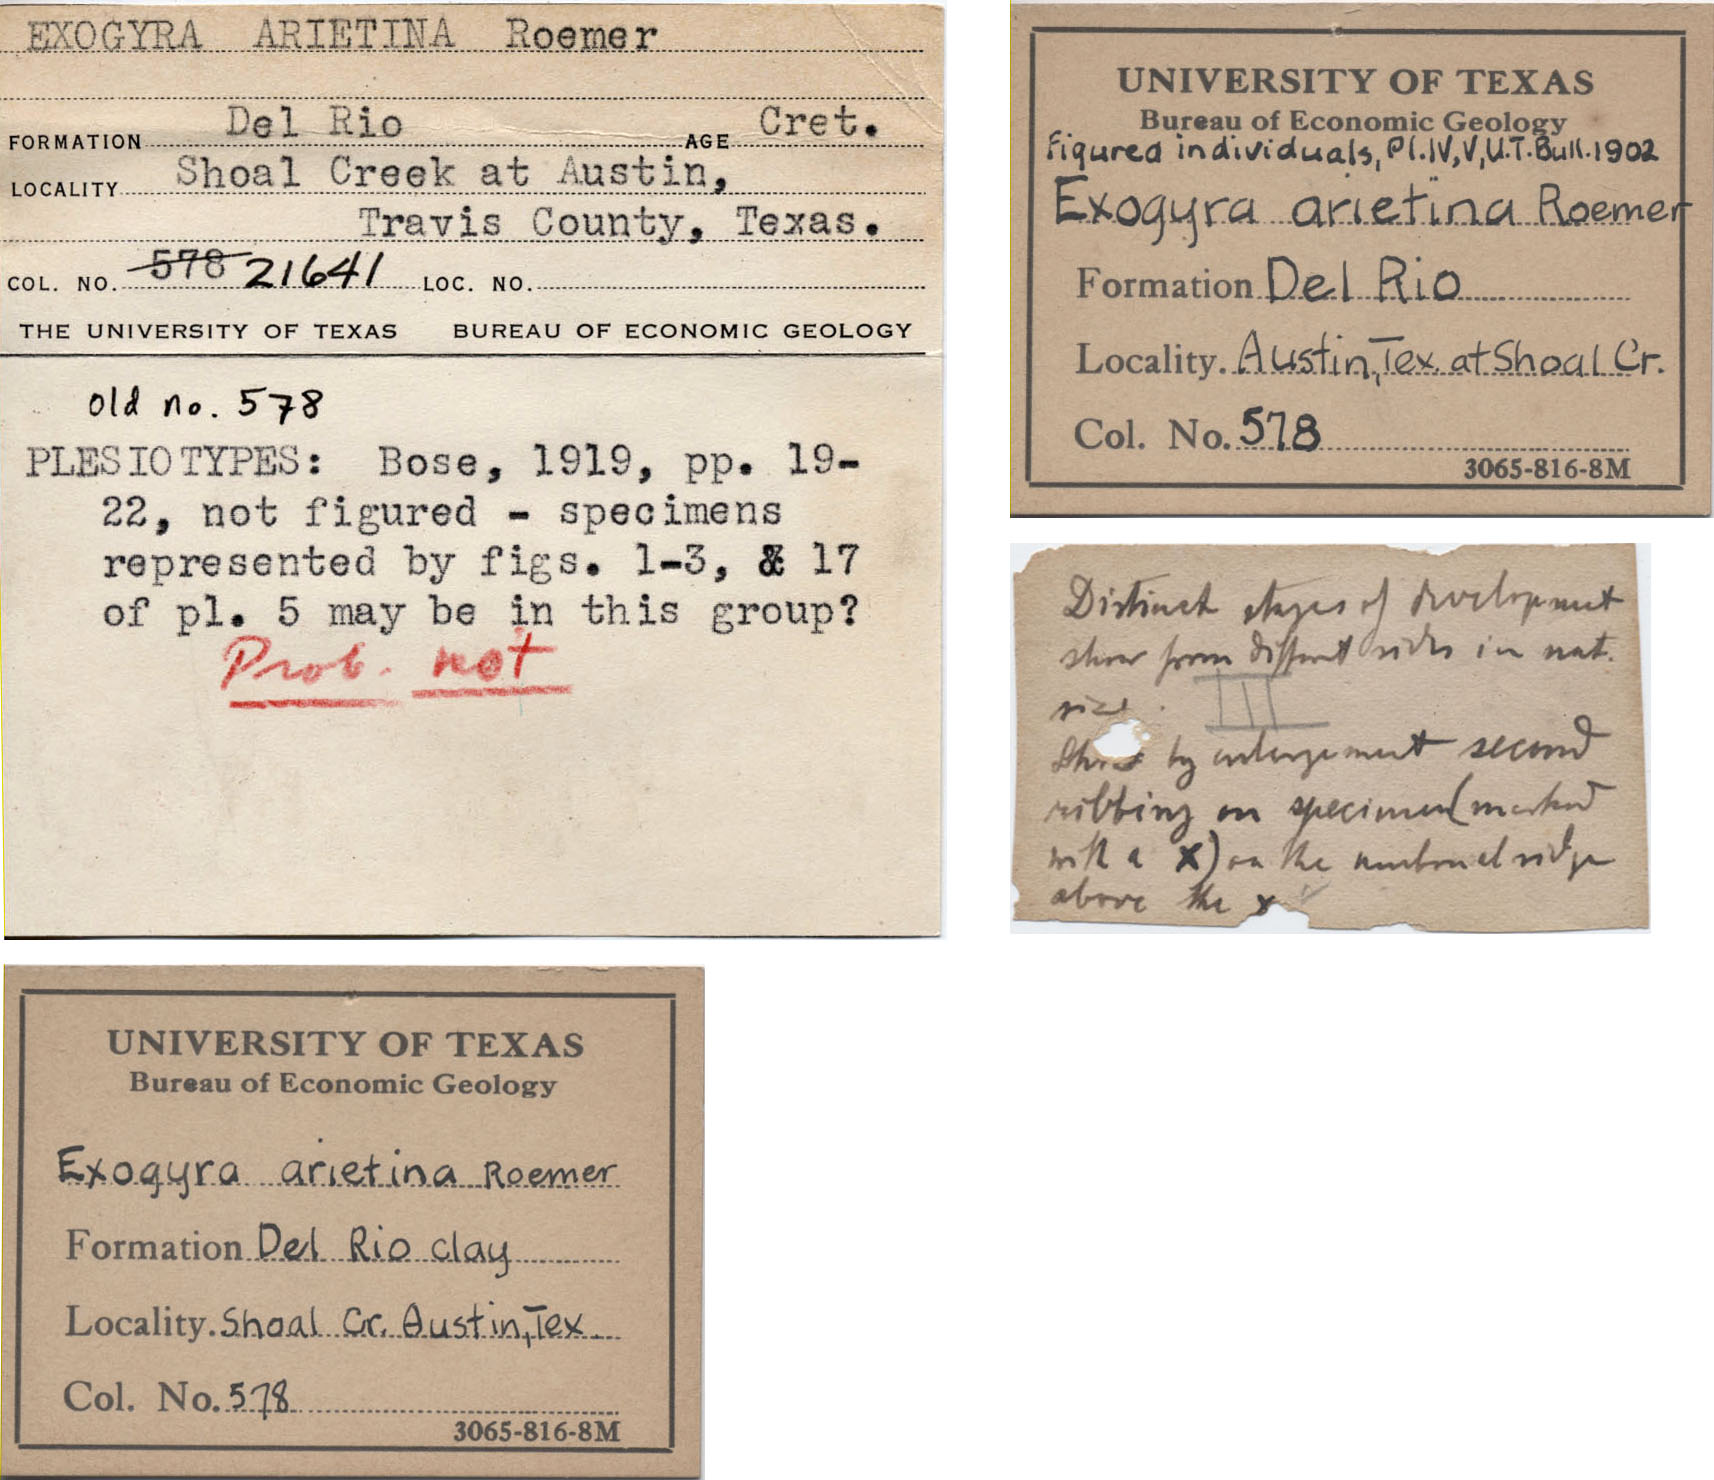 EXOGYRA ARIETINA Roemer
FORMATION Del Rio AGE Cret.
LOCALITY Shoal Creek at Austin,
Travis County, Texas.
COL. NO. 578 21641 LOC. NO.
THE UNIVERSITY OF TEXAS BUREAU OF ECONOMIC GEOLOGY
old no. 578
PLESIOTYPES: Bose, 1919, pp. 19-
22, not figured - specimens
represented by figs. 1-3, & 17
of pl. 5 may be in this group?
Prob. not
UNIVERSITY OF TEXAS
Bureau of Economic Geology
Figured individuals, Pl.IV,V, U.T. Bull. 1902
Exogyra arietina Roemer
Formation Del Rio
Locality. Austin, Tex. at Shoal Cr.
Col. No. 578
3065-816-8M
Distinct stages of development
show from different sides in nat.
size.
III
Show by enlargement second
ribbing on specimen (marked
with a x) on the umbonal ridge
above the x
UNIVERSITY OF TEXAS
Bureau of Economic Geology
Exogyra arietina Roemer
Formation Del Rio clay
Locality. Shoal Cr. Austin, Tex.
Col. No. 578
3065-816-8M